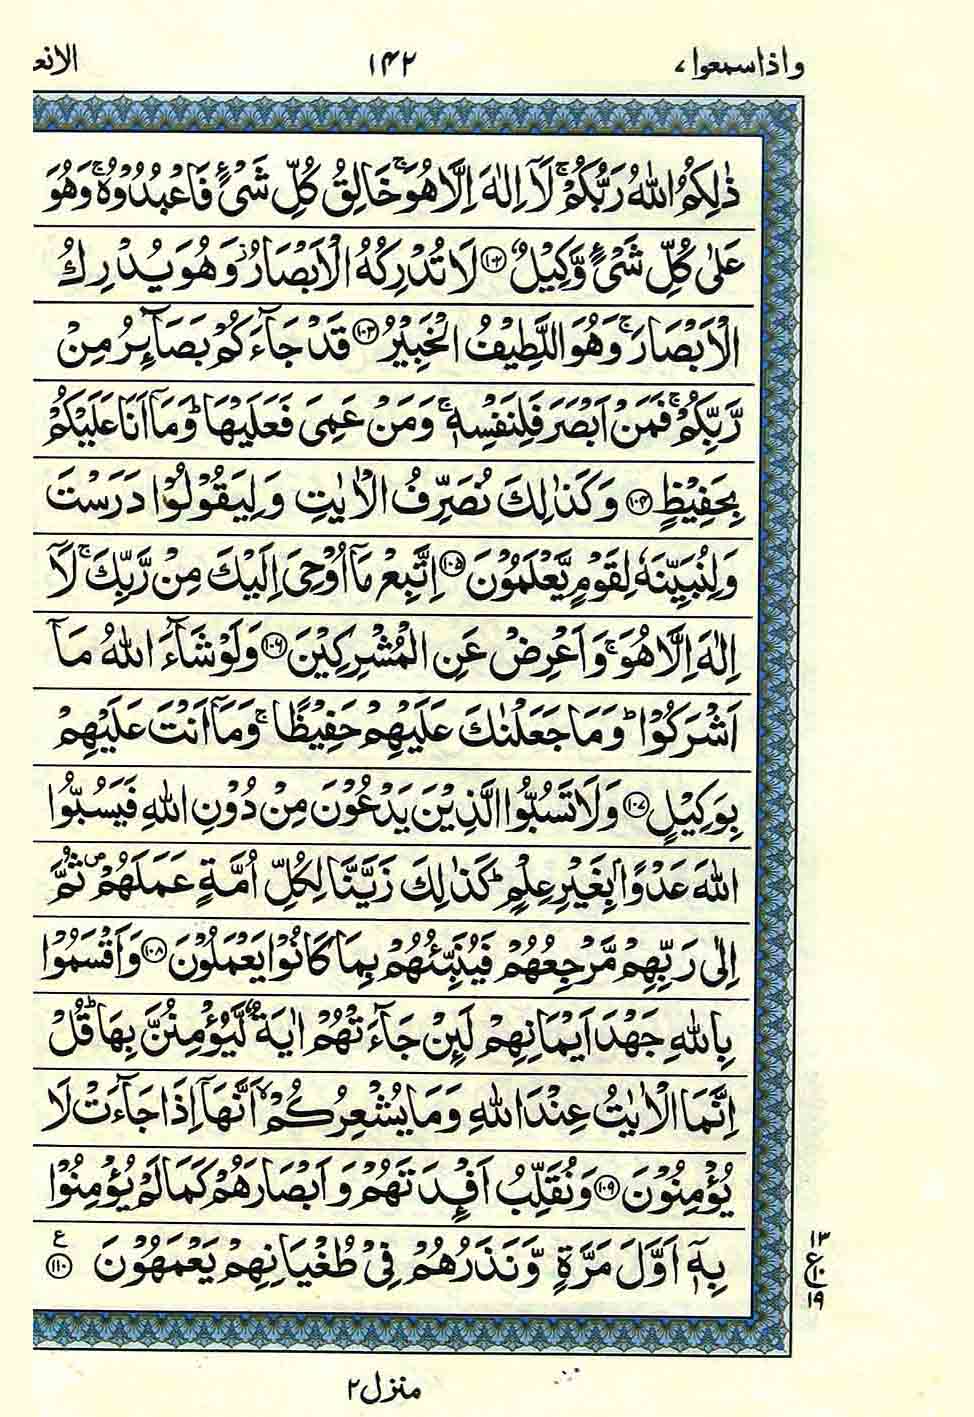 واذاسمعوا ٧ ١٤٢ الانع
ذٰلِكُمُ اللّٰهُ رَبُّكُمْ ۚ لَاۤ اِلٰهَ اِلَّا هُوَ ۚ خَالِقُ كُلِّ شَیْءٍ فَاعْبُدُوْهُ ۚ وَهُوَ
عَلٰی كُلِّ شَیْءٍ وَّكِیْلٌ ۝۱۰۲ لَا تُدْرِكُهُ الْاَبْصَارُ ۫ وَهُوَ یُدْرِكُ
الْاَبْصَارَ ۚ وَهُوَ اللَّطِیْفُ الْخَبِیْرُ ۝۱۰۳ قَدْ جَآءَكُمْ بَصَآىِٕرُ مِنْ
رَّبِّكُمْ ۚ فَمَنْ اَبْصَرَ فَلِنَفْسِهٖ ۚ وَمَنْ عَمِیَ فَعَلَیْهَا ؕ وَمَاۤ اَنَا عَلَیْكُمْ
بِحَفِیْظٍ ۝۱۰۴ وَكَذٰلِكَ نُصَرِّفُ الْاٰیٰتِ وَلِیَقُوْلُوْا دَرَسْتَ
وَلِنُبَیِّنَهٗ لِقَوْمٍ یَّعْلَمُوْنَ ۝۱۰۵ اِتَّبِعْ مَاۤ اُوْحِیَ اِلَیْكَ مِنْ رَّبِّكَ ۚ لَاۤ
اِلٰهَ اِلَّا هُوَ ۚ وَاَعْرِضْ عَنِ الْمُشْرِكِیْنَ ۝۱۰۶ وَلَوْ شَآءَ اللّٰهُ مَاۤ
اَشْرَكُوْا ؕ وَمَا جَعَلْنٰكَ عَلَیْهِمْ حَفِیْظًا ۚ وَمَاۤ اَنْتَ عَلَیْهِمْ
بِوَكِیْلٍ ۝۱۰۷ وَلَا تَسُبُّوا الَّذِیْنَ یَدْعُوْنَ مِنْ دُوْنِ اللّٰهِ فَیَسُبُّوا
اللّٰهَ عَدْوًۢا بِغَیْرِ عِلْمٍ ؕ كَذٰلِكَ زَیَّنَّا لِكُلِّ اُمَّةٍ عَمَلَهُمْ ۪ ثُمَّ
اِلٰی رَبِّهِمْ مَّرْجِعُهُمْ فَیُنَبِّئُهُمْ بِمَا كَانُوْا یَعْمَلُوْنَ ۝۱۰۸ وَاَقْسَمُوْا
بِاللّٰهِ جَهْدَ اَیْمَانِهِمْ لَىِٕنْ جَآءَتْهُمْ اٰیَةٌ لَّیُؤْمِنُنَّ بِهَا ؕ قُلْ
اِنَّمَا الْاٰیٰتُ عِنْدَ اللّٰهِ وَمَا یُشْعِرُكُمْ ۙ اَنَّهَاۤ اِذَا جَآءَتْ لَا
یُؤْمِنُوْنَ ۝۱۰۹ وَنُقَلِّبُ اَفْـِٕدَتَهُمْ وَاَبْصَارَهُمْ كَمَا لَمْ یُؤْمِنُوْا
بِهٖۤ اَوَّلَ مَرَّةٍ وَّنَذَرُهُمْ فِیْ طُغْیَانِهِمْ یَعْمَهُوْنَ ۝۱۱۰ ع
۱۳
ع ۱۰
۱۹
منزل ۲